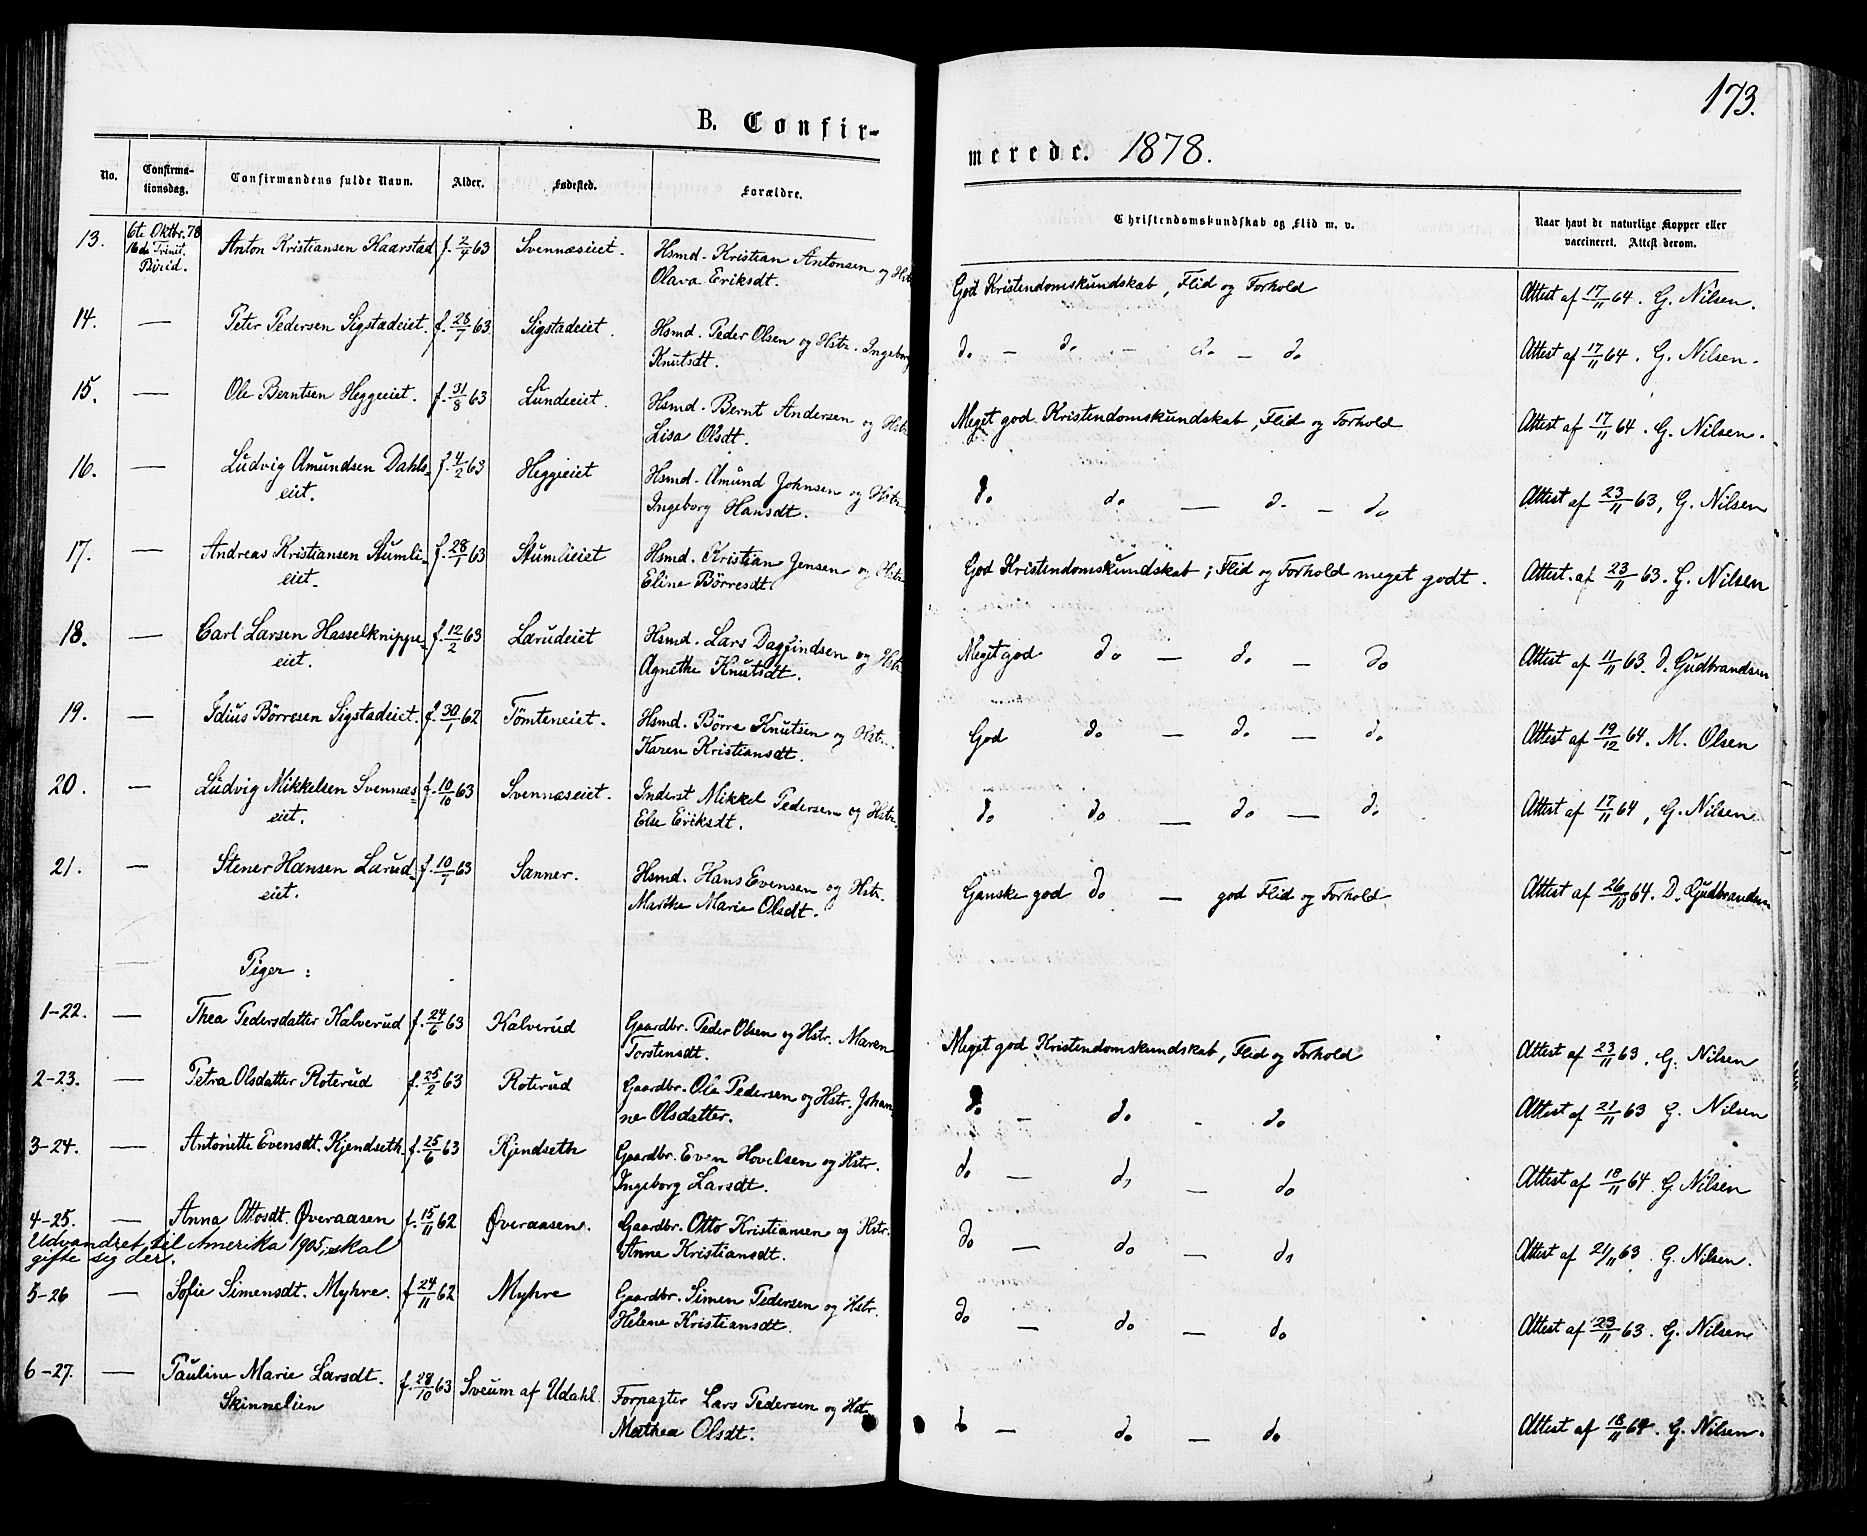 173.
B. Confir-
merede. 1878.
No. Confirma-tionsdag. Confirmandens fulde Navn. Alder. Fødested. Forældre. Christendomskundskab og Flid m. v. Naar havt de naturlige Kopper eller vaccineret. Attest derom.
13. 6te Oktbr. 78 Anton Kristiansen Kaarstad f. 2/7 63 Svennæseiet. Hsmd. Kristian Antonsen og Hstr. God Kristendomskundskab, Flid og Forhold Attest af 17/11 64. G. Nilsen.
16de Trinit. Birid. Olava Eriksdt.
14. — Peter Pedersen Sigstadeiet. f. 28/7 63 Sigstadeiet. Hsmd. Peder Olsen og Hstr. Ingeborg do — do — do — do Attest af 17/11 64. G. Nilsen.
Knutsdt.
15. — Ole Berntsen Heggeeiet. f. 31/8 63 Lundeeiet. Hsmd. Bernt Andersen og Hstr. Meget god Kristendomskundskab, Flid og Forhold Attest af 17/11 64. G. Nilsen.
Lisa Olsdt.
16. — Ludvig Amundsen Dahls- f. 4/2 63 Heggeeiet Hsmd. Amund Johnsen og Hstr. do do — do — do Attest af 23/11 63, G. Nilsen
eiet. Ingeborg Hansdt.
17. — Andreas Kristiansen Stumli- f. 28/1 63 Stumlieiet Hsmd. Kristian Jensen og Hstr. God Kristendomskundskab; Flid og Forhold meget godt. Attest af 23/11 63. G. Nilsen
eiet. Eline Börresdt.
18. — Carl Larsen Hasselknippe- f. 12/2 63 Lærudeiet Hsmd. Lars Dagfindsen og Hstr. Meget god do — do — do Attest af 11/11 63. D. Gudbrandsen
eiet. Agnethe Knutsdt.
19. — Idius Börresen Sigstadeiet. f. 30/1 62 Tömteneiet. Hsmd. Börre Knutsen og Hstr. God do — do — do Attest af 19/12 64. M. Olsen
Karen Kristiansdt.
20. — Ludvig Mikkelsen Svennæs- f. 10/10 63 Svennæseiet. Inderst Mikkel Pedersen og Hstr. do do — do — do Attest af 17/11 64, G. Nilsen
eiet. Else Eriksdt.
21. — Stener Hansen Lærud- f. 10/7 63 Sanner. Hsmd. Hans Evensen og Hstr. Ganske god do — god Flid og Forhold Attest af 26/10 64. D. Gudbrandsen
eiet. Marthe Marie Olsdt.
Piger:
1-22. — Thea Pedersdatter Kalverud f. 24/6 63 Kalverud Gaardbr. Peder Olsen og Hstr. Maren Meget god Kristendomskundskab, Flid og Forhold Attest af 23/11 63. G. Nilsen
Torstensdt.
2-23. — Petra Olsdatter Roterud f. 25/2 63 Roterud Gaardbr. Ole Pedersen og Hstr. Johan- do — do - do Attest af 21/11 63 G. Nilsen
ne Olsdatter.
3-24. — Antonette Evensdt. Kjendseth f. 25/6 63 Kjendseth Gaardbr. Even Hovelsen og Hstr. do — do — do Attest af 18/11 64. G. Nilsen
Ingeborg Larsdt.
4-25. — Anna Ottosdt. Øveraasen f. 15/11 62 Øveraasen. Gaardbr. Otto Kristiansen og Hstr. do — do — do Attest af 21/11 63. G. Nilsen.
Udvandret til Amerika 1905, skal Anne Kristiansdt.
gifte sig der.
5-26 — Sofie Simensdt. Myhre. f. 24/11 62 Myhre Gaardbr. Simen Pedersen og Hstr. do — do — do Attest af 23/11 63. G. Nilsen
Helene Kristiansdt.
6-27. — Pauline Marie Larsdt. f. 28/10 63 Sveum af Udahl. Forpagter Lars Pedersen og Hstr. do — do — do Attest af 18/11 64. G. Nilsen.
Skinnelien Mathea Olsdt.